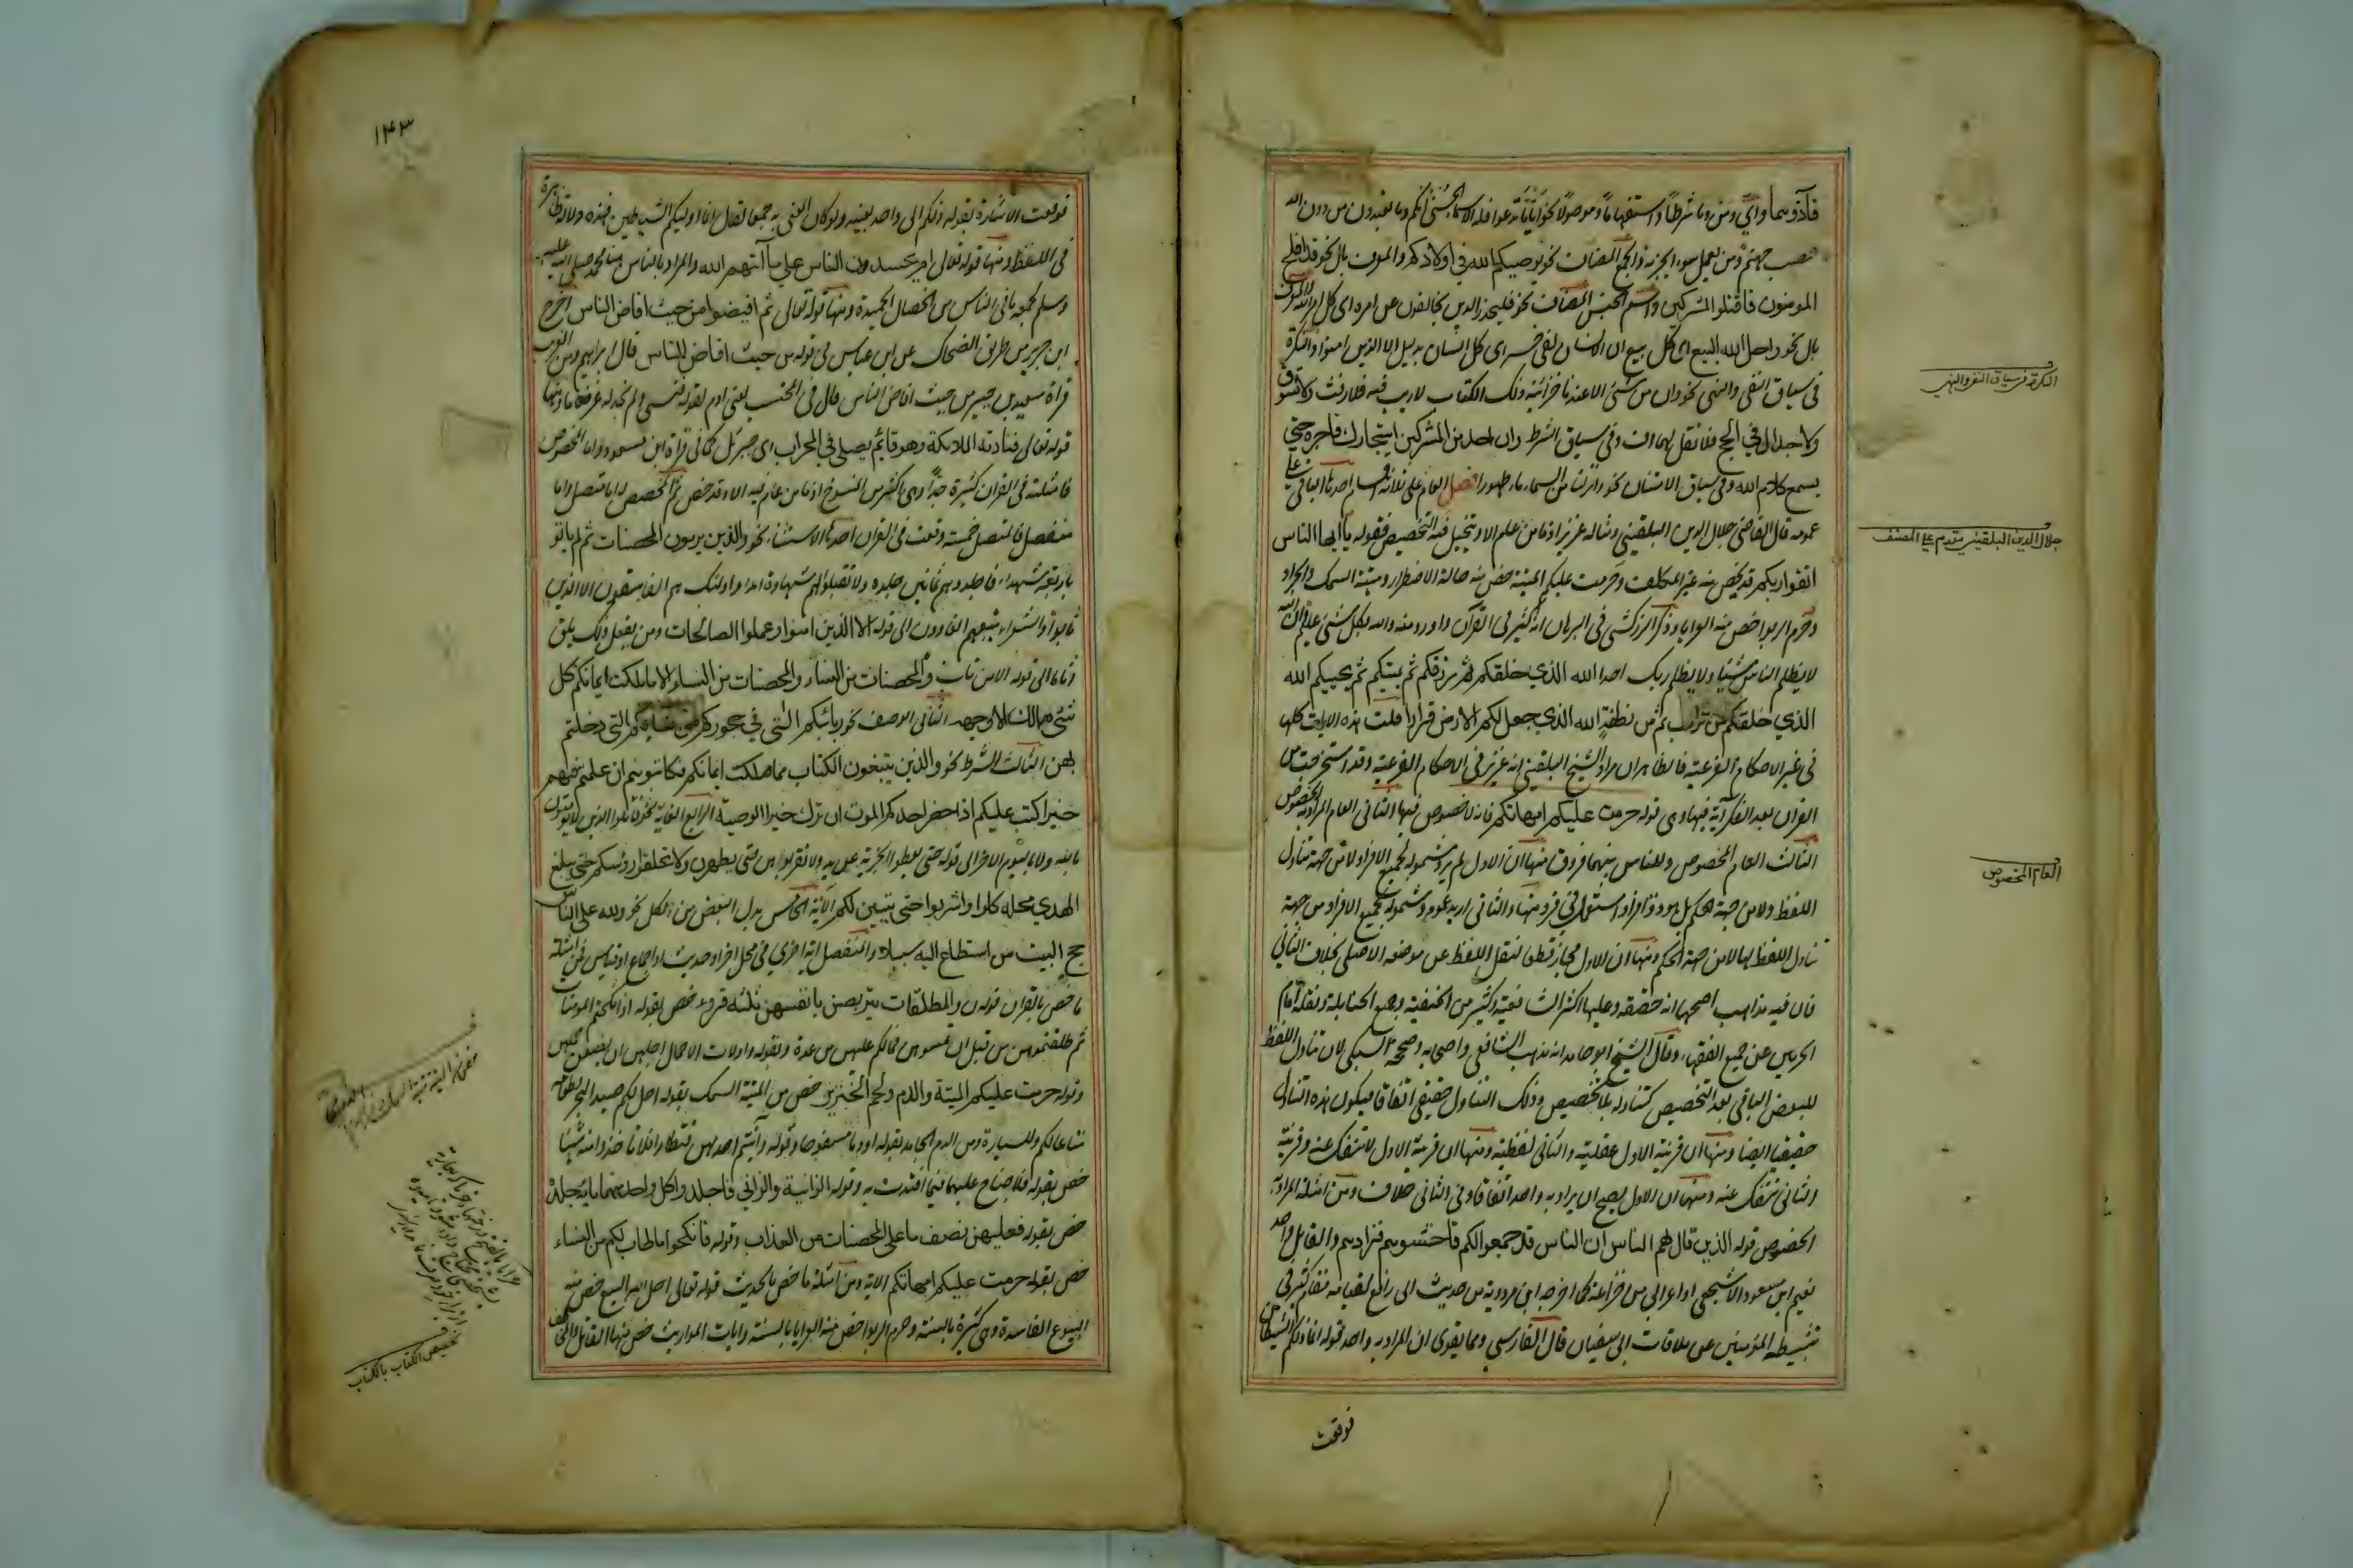 فآذوهما واي ومن وما شرطا واستفهاما وموصولا نحو ايا ما تدعوا فله الاسماء الحسنى انكم وما تعبدون من دون الله
حصب جهنم ومن يعمل سوء يجز به والجمع المضاف نحو يوصيكم الله في اولادكم والمعرف بال نحو قد افلح
المومنون فاقتلوا المشركين واسم الجنس المضاف نحو فليحذر الذين يخالفون عن امره اى كل امر الله والمعرف
بال نحو واحل الله البيع اى كل بيع ان الانسان لفى خسر اى كل انسان بدليل الا الذين امنوا والنكرة
فى سياق النفى والنهى نحو وان من شئ الا عندنا خزائنه ذلك الكتاب لاريب فيه فلا رفث ولا فسوق
ولا جدال في الحج فلا تقل لهما اف وفى سياق الشرط وان احد من المشركين استجارك فاجره حتى
يسمع كلام الله وفى سياق الامتنان نحو وانزلنا من السماء ماء طهورا فصل العام على ثلاثة اقسام احدها الباقى على
عمومه قال القاضى جلال الدين البلقينى ومثاله عزيز اذ ما من عام الا ويتخيل فيه التخصيص فقوله ياايها الناس
اتقوا ربكم قد يخص منه غير المكلف وحرمت عليكم الميتة خص منه حالة الاضطرار وميتة السمك والجراد
وحرم الربوا خص منه العرايا وذكر الزركشى فى البرهان انه كثير فى القرآن واورد منه والله بكل شئ عليم ان الله
لا يظلم الناس شيئا ولا يظلم ربك احدا الله الذي خلقكم ثم رزقكم ثم يميتكم ثم يحييكم الله
الذي خلقكم من تراب ثم من نطفة الله الذي جعل لكم الارض قرارا قلت هذه الايات كلها
فى غير الاحكام الفرعية فالظاهر ان مراد الشيخ البلقينى انه عزيز فى الاحكام الفرعية وقد استخرجت من
القران بعد الفكر آية فيها وهى قوله حرمت عليكم امهاتكم فانه لا خصوص فيها الثانى العام المراد به الخصوص
الثالث العام المخصوص وللناس بينهما فروق منها ان الاول لم يرد شموله لجميع الافراد لا من جهة تناول
اللفظ ولا من جهة الحكم بل هو ذو افراد استعمل فى فرد منها والثانى اريد عمومه وشموله لجميع الافراد من جهة
تناول اللفظ لها لا من جهة الحكم ومنها ان الاول مجاز قطعا لنقل اللفظ عن موضعه الاصلى بخلاف الثانى
فان فيه مذاهب اصحها انه حقيقة وعليها اكثر الشافعية وكثير من الحنفية وجميع الحنابلة ونقله امام
الحرمين عن جميع الفقهاء وقال الشيخ ابو حامد انه مذهب الشافعى واصحابه وصححه السبكى لان تناول اللفظ
للبعض الباقى بعد التخصيص كتناوله بلا تخصيص وذلك التناول حقيقى اتفاقا فيكون هذه التناول
حقيقيا ايضا ومنها ان قرينة الاول عقلية والثانى لفظية ومنها ان قرينة الاول لا تنفك عنه وقرينة
الثانى تنفك عنه ومنها ان الاول يصح ان يراد به واحد اتفاقا وفى الثانى خلاف ومن امثلة المراد به
الخصوص قوله الذين قال لهم الناس ان الناس قد جمعوا لكم فاخشوهم فزادهم والقايل واحد
نعيم ابن مسعود الاشجعى او اعرابى من خزاعة كما اخرجه ابن مردوية من حديث ابى رافع لقيامه مقام كثير فى
تثبيطه المؤمنين عن ملاقات ابى سفيان قال الفارسي ومما يقوى ان المراد به واحد قوله انما ذلكم الشيطان
فوقعت
النكرة فى سياق النفى والنهى
جلال الدين البلقينى متقدم على المصنف
العام المخصوص
١٤٣
فوقعت الاشارة بقوله ذلكم الى واحد بعينه ولو كان المعنى به جمعا لقال انما اوليكم الشيطين فهذه دلالة ظاهرة
فى اللفظ ومنها قوله تعالى ام يحسدون الناس على ما آتهم الله والمراد بالناس هنا محمد صلى الله عليه
وسلم لجمعه ما فى الناس من الخصال الحميدة ومنها قوله تعالى ثم افيضوا من حيث افاض الناس اخرج
ابن جرير من طريق الضحاك عن ابن عباس فى قوله من حيث افاض الناس قال ابراهيم ومن الغريب
قراة سعيد بن جبير من حيث افاض الناس قال فى المحتسب يعنى ادم لقوله فنسى ولم نجد له عزما ومنها
قوله تعالى فنادته الملايكة وهو قائم يصلى فى المحراب اى جبرئل كما فى قراة ابن مسعود واما المخصوص
فامثلته فى القران كثيرة جدا وهى اكثر من المنسوخ اذ ما من عام فيه الا وقد خص ثم المخصص له اما متصل واما
منفصل فالمتصل خمسة وقعت فى القران احدها الاستثناء نحو والذين يرمون المحصنات ثم لم ياتوا
باربعة شهداء فاجلدوهم ثمانين جلدة ولا تقبلوا لهم شهادة ابدا واولئك هم الفاسقون الا الذين
تابوا والشعراء يتبعهم الغاوون الى قوله الا الذين امنوا وعملوا الصالحات ومن يفعل ذلك يلق
اثاما الى قوله الا من تاب والمحصنات من النساء والمحصنات من النساء الا ما ملكت ايمانكم كل
شئ هالك الا وجهه الثانى الوصف نحو وربائبكم التى في حجوركم من نسائكم التى دخلتم
بهن الثالث الشرط نحو والذين يبتغون الكتاب مما ملكت ايمانكم فكاتبوهم ان علمتم فيهم
خيرا كتب عليكم اذا حضر احدكم الموت ان ترك خيرا الوصية الرابع الغاية نحو قاتلوا الذين لا يؤمنون
بالله ولا باليوم الاخر الى قوله حتى يعطوا الجزية عن يد ولا تقربوهن حتى يطهرن ولا تحلقوا رؤسكم حتى يبلغ
الهدي محله كلوا واشربوا حتى يتبين لكم الآية الخامس بدل البعض من الكل نحو ولله على الناس
حج البيت من استطاع اليه سبيلا والمنفصل اية اخرى فى محل اخر او حديث او اجماع او قياس فمن امثلة
ما خص بالقران قوله والمطلقات يتربصن بانفسهن ثلثة قروء خص بقوله اذا نكحتم المومنات
ثم طلقتموهن من قبل ان تمسوهن فمالكم عليهن من عدة وبقوله واولات الاحمال اجلهن ان يضعن حملهن
وقوله حرمت عليكم الميتة والدم ولحم الخنزير خص من الميتة السمك بقوله احل لكم صيد البحر وطعامه
متاعا لكم وللسيارة ومن الدم الجامد بقوله او دما مسفوحا وقوله وآتيتم احدهن قنطارا فلا تاخذوا منه شيئا
خص بقوله فلا جناح عليهما فيما افتدت به وقوله الزانية والزاني فاجلدوا كل واحد منهما مائة جلدة
خص بقوله فعليهن نصف ما على المحصنات من العذاب وقوله فانكحوا ما طاب لكم من النساء
خص بقوله حرمت عليكم امهاتكم الاية ومن امثلة ما خص بالحديث قوله تعالى احل الله البيع خص منه
البيوع الفاسدة وهى كثيرة بالسنة وحرم الربوا خص منه العرايا بالسنة وايات المواريث خص منها القاتل والمخالف
تخصيص الكتاب بالكتاب